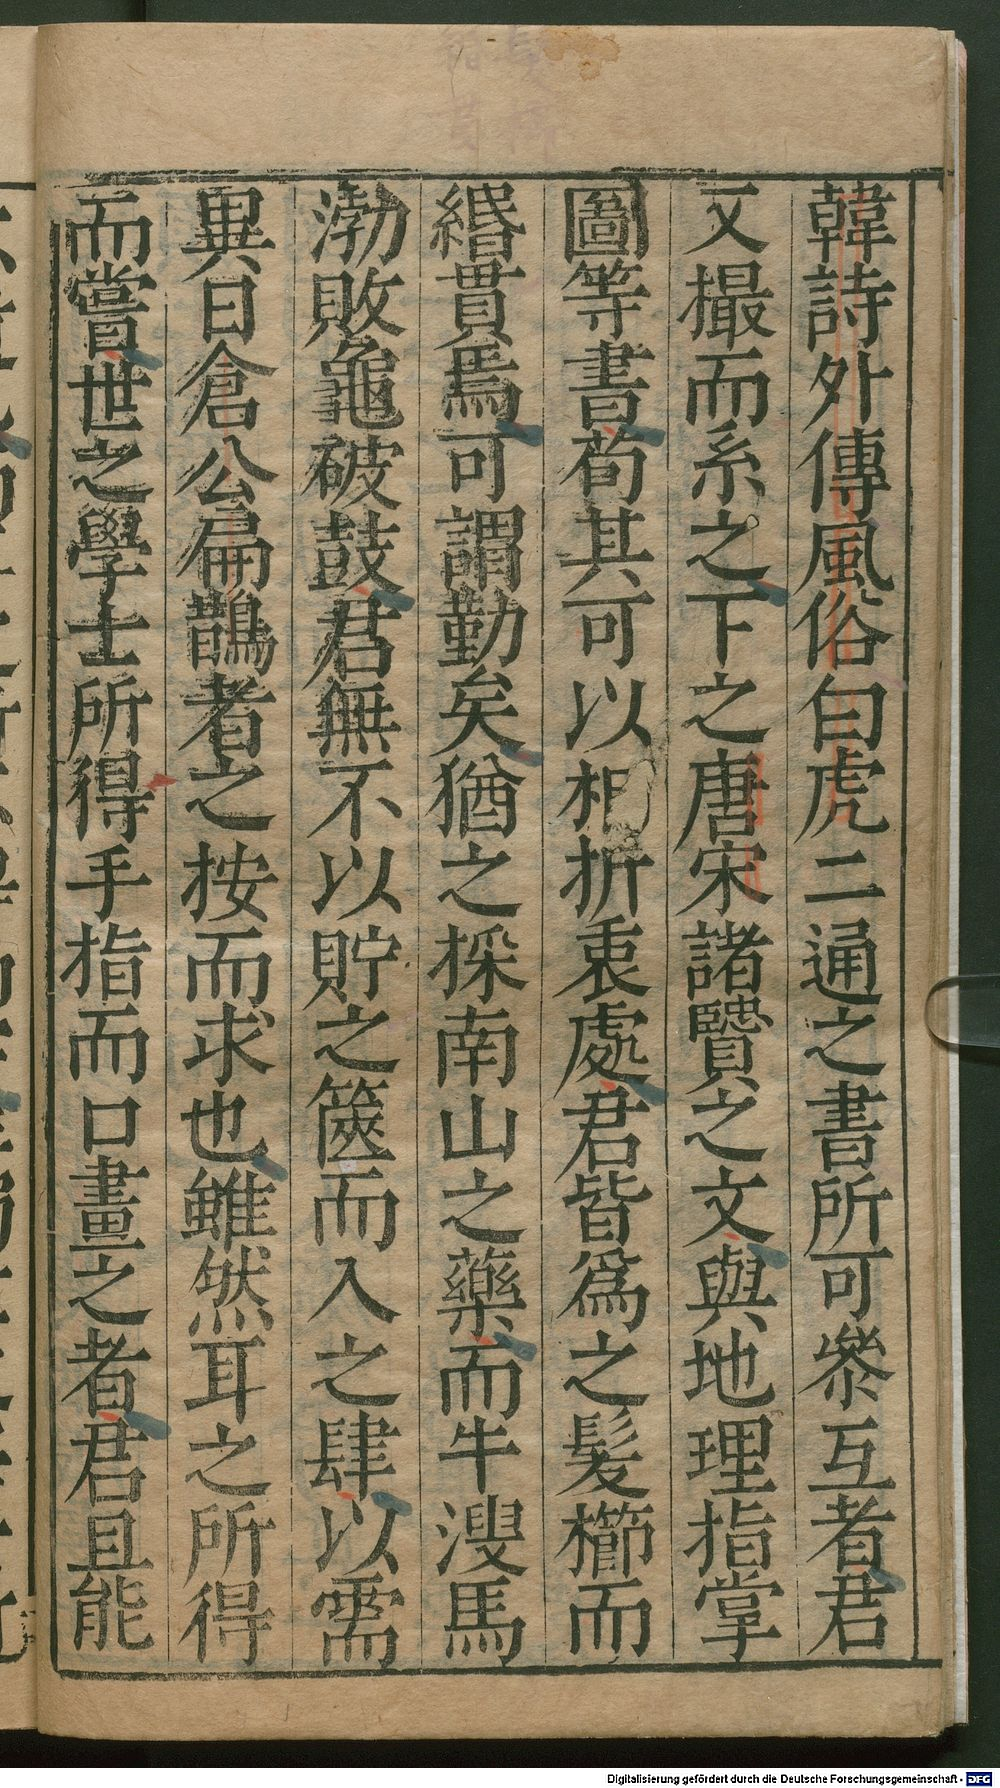 韓詩外傳風俗白虎二通之書所可叅互者君
又撮而系之下之唐宋諸賢之文與地理指掌
圖等書苟其可以相折衷處君皆爲之髮櫛而
緡貫焉可謂勤矣猶之採南山之藥而牛溲馬
渤敗龜破鼓君無不以貯之篋而入之肆以需
異日倉公扁鵲者之按而求也雖然耳之所得
而嘗世之學士所得手指而口畫之者君且能
Digitalisierung gefördert durch die Deutsche Forschungsgemeinschaft - DFG